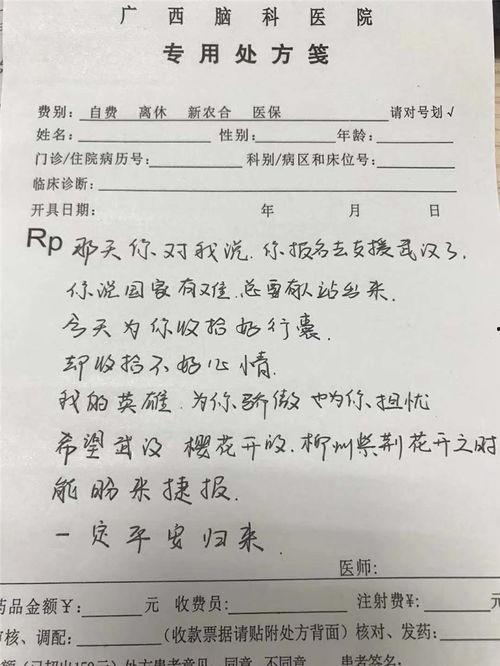 广西脑科医院
专用处方笺
费别: 自费 离休 新农合 医保 请对号划√
姓名: 性别: 年龄:
门诊/住院病历号: 科别/病区和床位号:
临床诊断:
开具日期: 年 月 日
Rp 那天你对我说.你报名去支援武汉了.
你说国家有难.总要有人站出来.
今天为你收拾好行囊.
却收拾不好心情.
我的英雄.为你骄傲 也为你担忧
希望武汉 樱花开的.柳州紫荆花开之时
能盼来捷报.
一定平安归来.
医师:
药品金额¥: 元 收费员: 注射费¥: 元
审核、调配: (收款票据请贴附处方背面) 核对、发药:
处方患者意见 同意 不同意 患者签名: